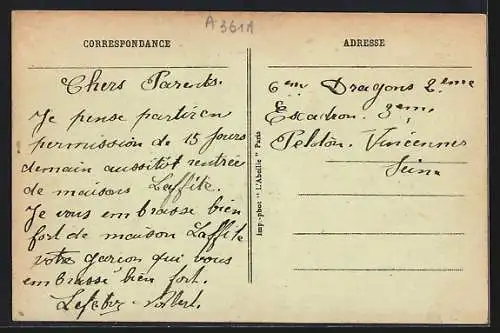 A3611
CORRESPONDANCE
Chers Parents.
Je pense partir en
permission de 15 jours
demain aussitôt rentrée
de maisons Laffite.
Je vous embrasse bien
fort de maison Laffite
votre garçon qui vous
embrasse bien fort.
Imp.-phot "L'Abeille" Paris
ADRESSE
6em Dragons 2eme
Escadron. 3eme
Peloton. Vincennes
Seine